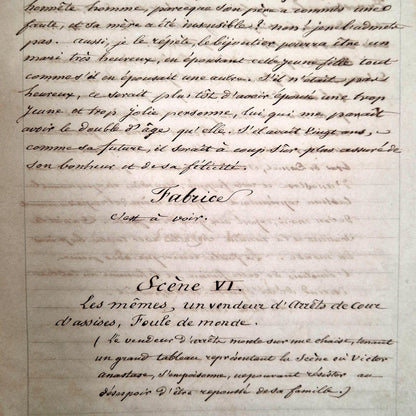 honnête homme, parceque son père a commis une
faute, et sa mère a été insensible? non! je ne badine
pas. aussi, je le répète, le bijoutier pourra être un
mari très heureux, en épousant cette jeune fille tout
comme s'il en épousait une autre. S'il n'était pas
heureux, ce serait plus tôt d'avoir épousé une trop
jeune et trop jolie personne, lui qui me paraît
avoir le double d'âge qu'elle. S'il avait vingt ans,
comme sa future, il serait à coup sûr plus assuré de
son bonheur et de sa félicité.
Fabrice
c'est à voir.
Scène VI.
Les mêmes, un vendeur d'Arrêts de Cour
d'assises, Foule de monde.
(Le vendeur d'arrêts monte sur une chaise, tenant
un grand tableau représentant la scène où Victor
anastase, s'empoisonne, ne pouvant résister au
désespoir d'être repoussé de sa famille.)